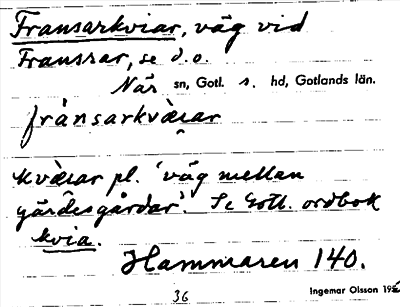 Fransarkviar, väg vid
Fransar, se d.o.
När sn, Gotl. s. hd, Gotlands län.
fránsarkvàrar
kvàrar pl. 'väg mellan
gärdesgårdar'. Se Gotl. ordbok
kvia.
Hammaren 140.
36
Ingemar Olsson 195